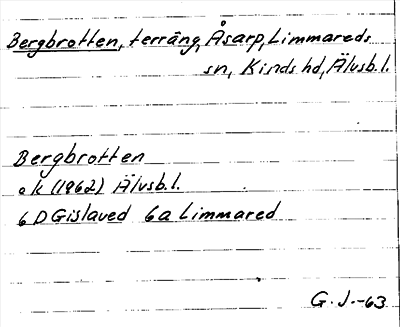 Bergbrotten, terräng, Åsarp, Limmareds
sn, Kinds hd, Älvsb.l.
Bergbrotten
ek (1962) Älvsb.l.
6 D Gislaved 6a Limmared
G. J. -63